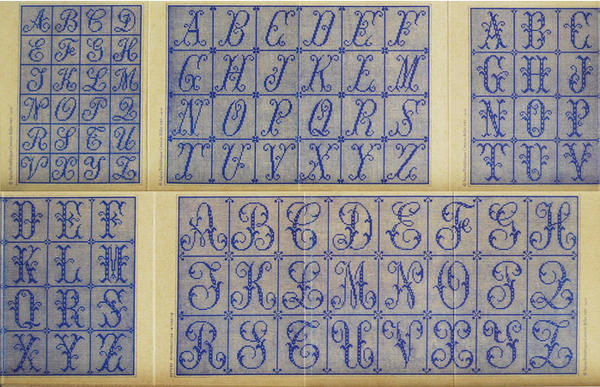 A B C D
E F G H
J K L M
N O P Q
R S T U
V X Y Z
A B C D E F
G H J K L M
N O P Q R S
T U V X Y Z
A B C
G H J
N O P
T U V
D E F
K L M
Q R S
X Y Z
A B C D E F G H
J K L M N O P Q
R S T U V X Y Z